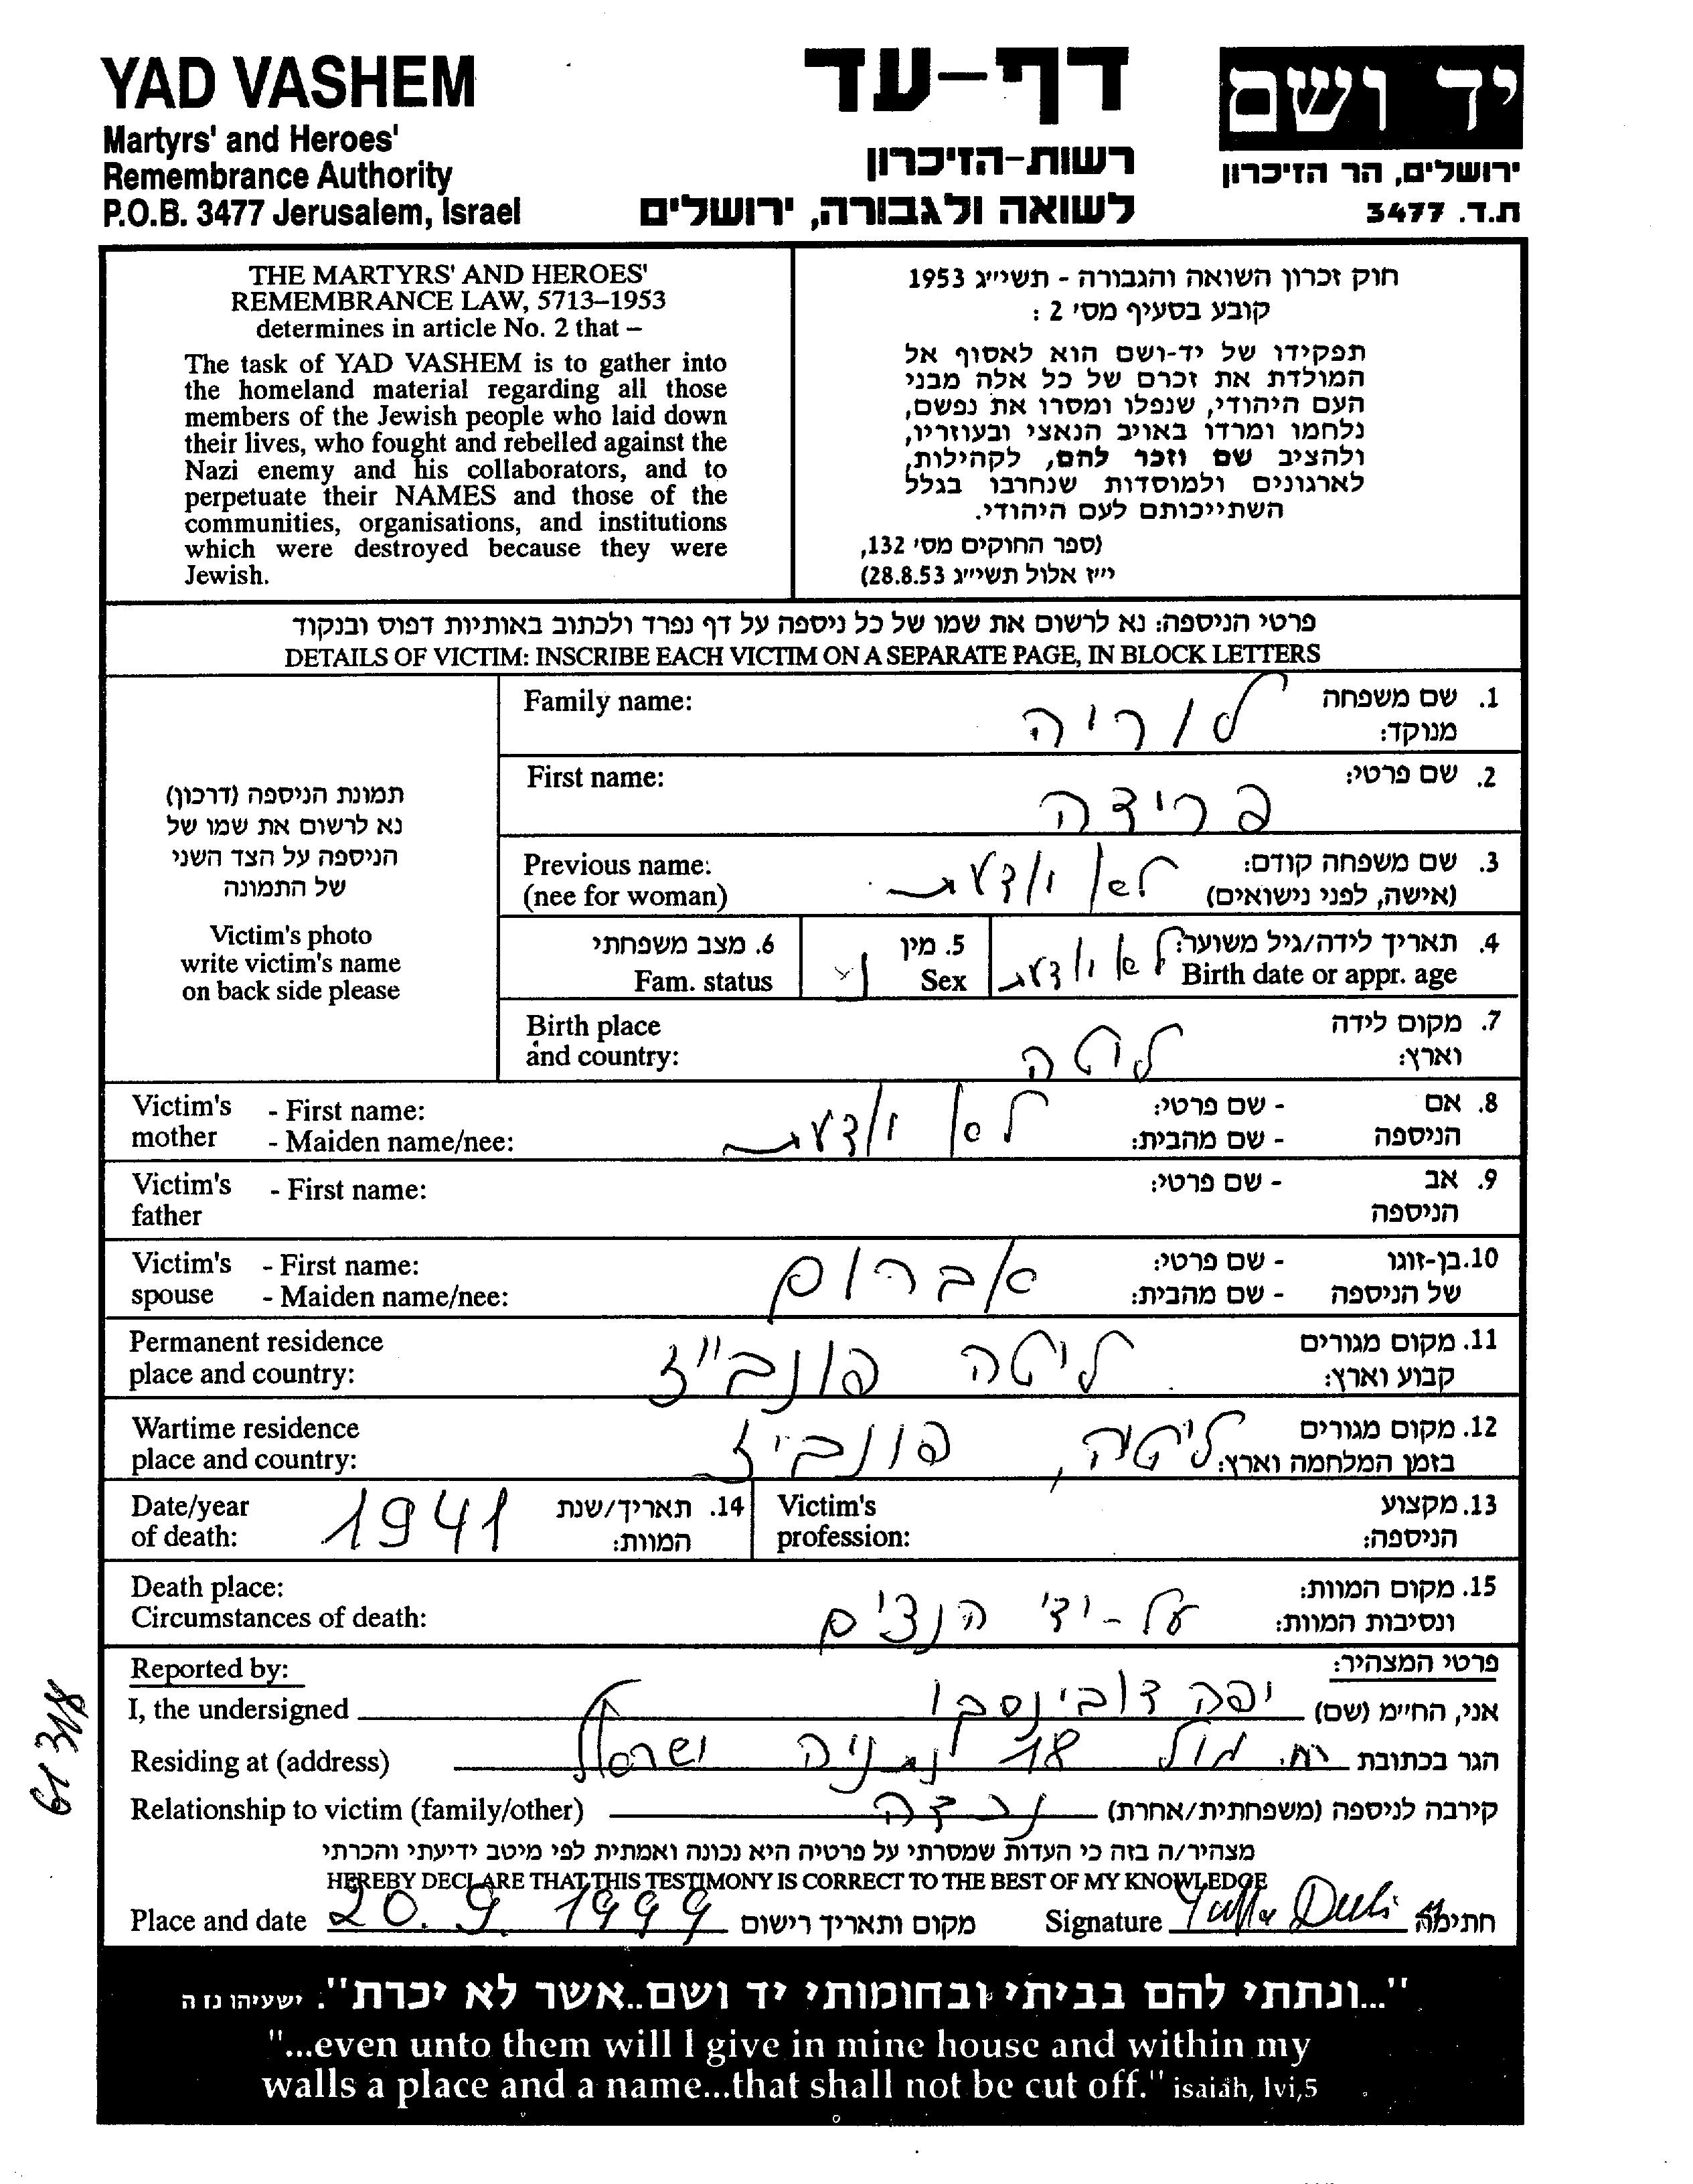 YAD VASHEM
Martyrs' and Heroes'
Remembrance Authority
P.O.B. 3477 Jerusalem, Israel
דף-עד
רשות-הזיכרון
לשואה ולגבורה, ירושלים
יד ושם
ירושלים, הר הזיכרון
ת.ד. 3477
THE MARTYRS' AND HEROES'
REMEMBRANCE LAW, 5713–1953
determines in article No. 2 that –
The task of YAD VASHEM is to gather into
the homeland material regarding all those
members of the Jewish people who laid down
their lives, who fought and rebelled against the
Nazi enemy and his collaborators, and to
perpetuate their NAMES and those of the
communities, organisations, and institutions
which were destroyed because they were
Jewish.
חוק זכרון השואה והגבורה - תשי״ג 1953
קובע בסעיף מס׳ 2 :
תפקידו של יד-ושם הוא לאסוף אל
המולדת את זכרם של כל אלה מבני
העם היהודי, שנפלו ומסרו את נפשם,
נלחמו ומרדו באויב הנאצי ובעוזריו,
ולהציב שם וזכר להם, לקהילות,
לארגונים ולמוסדות שנחרבו בגלל
השתייכותם לעם היהודי.
(ספר החוקים מס׳ 132,
י״ז אלול תשי״ג 28.8.53)
פרטי הניספה: נא לרשום את שמו של כל ניספה על דף נפרד ולכתוב באותיות דפוס ובנקוד
DETAILS OF VICTIM: INSCRIBE EACH VICTIM ON A SEPARATE PAGE, IN BLOCK LETTERS
תמונת הניספה (דרכון)
נא לרשום את שמו של
הניספה על הצד השני
של התמונה
Victim's photo
write victim's name
on back side please
1. שם משפחה
מנוקד:
לוריה
Family name:
2. שם פרטי:
פרידה
First name:
3. שם משפחה קודם:
(אישה, לפני נישואים)
לא ידעת
Previous name:
(nee for woman)
4. תאריך לידה/גיל משוער:
Birth date or appr. age
לא ידעת
5. מין
Sex
נ
6. מצב משפחתי
Fam. status
7. מקום לידה
וארץ:
ליטה
Birth place
and country:
8. אם
הניספה
- שם פרטי:
- שם מהבית:
לא ידעת
Victim's
mother
- First name:
- Maiden name/nee:
9. אב
הניספה
- שם פרטי:
Victim's
father
- First name:
10. בן-זוגו
של הניספה
- שם פרטי:
- שם מהבית:
אברום
Victim's
spouse
- First name:
- Maiden name/nee:
11. מקום מגורים
קבוע וארץ:
ליטה פונבי״ז
Permanent residence
place and country:
12. מקום מגורים
בזמן המלחמה וארץ:
ליטה, פונביז
Wartime residence
place and country:
13. מקצוע
הניספה:
Victim's
profession:
14. תאריך/שנת
המוות:
1941
Date/year
of death:
15. מקום המוות:
ונסיבות המוות:
על-ידי הנצים
Death place:
Circumstances of death:
פרטי המצהיר:
Reported by:
אני, החי״מ (שם) יפה דובינסקי
I, the undersigned
הגר בכתובת 18 נתניה ישראל
Residing at (address)
קירבה לניספה (משפחתית/אחרת) נכדה
Relationship to victim (family/other)
מצהיר/ה בזה כי העדות שמסרתי על פרטיה היא נכונה ואמתית לפי מיטב ידיעתי והכרתי
HEREBY DECLARE THAT THIS TESTIMONY IS CORRECT TO THE BEST OF MY KNOWLEDGE
Place and date 20.9.1999 מקום ותאריך רישום
Signature Yaffa חתימה
"...ונתתי להם בביתי ובחומותי יד ושם..אשר לא יכרת". ישעיהו נז ה
"...even unto them will I give in mine house and within my
walls a place and a name...that shall not be cut off." isaiah, lvi,5